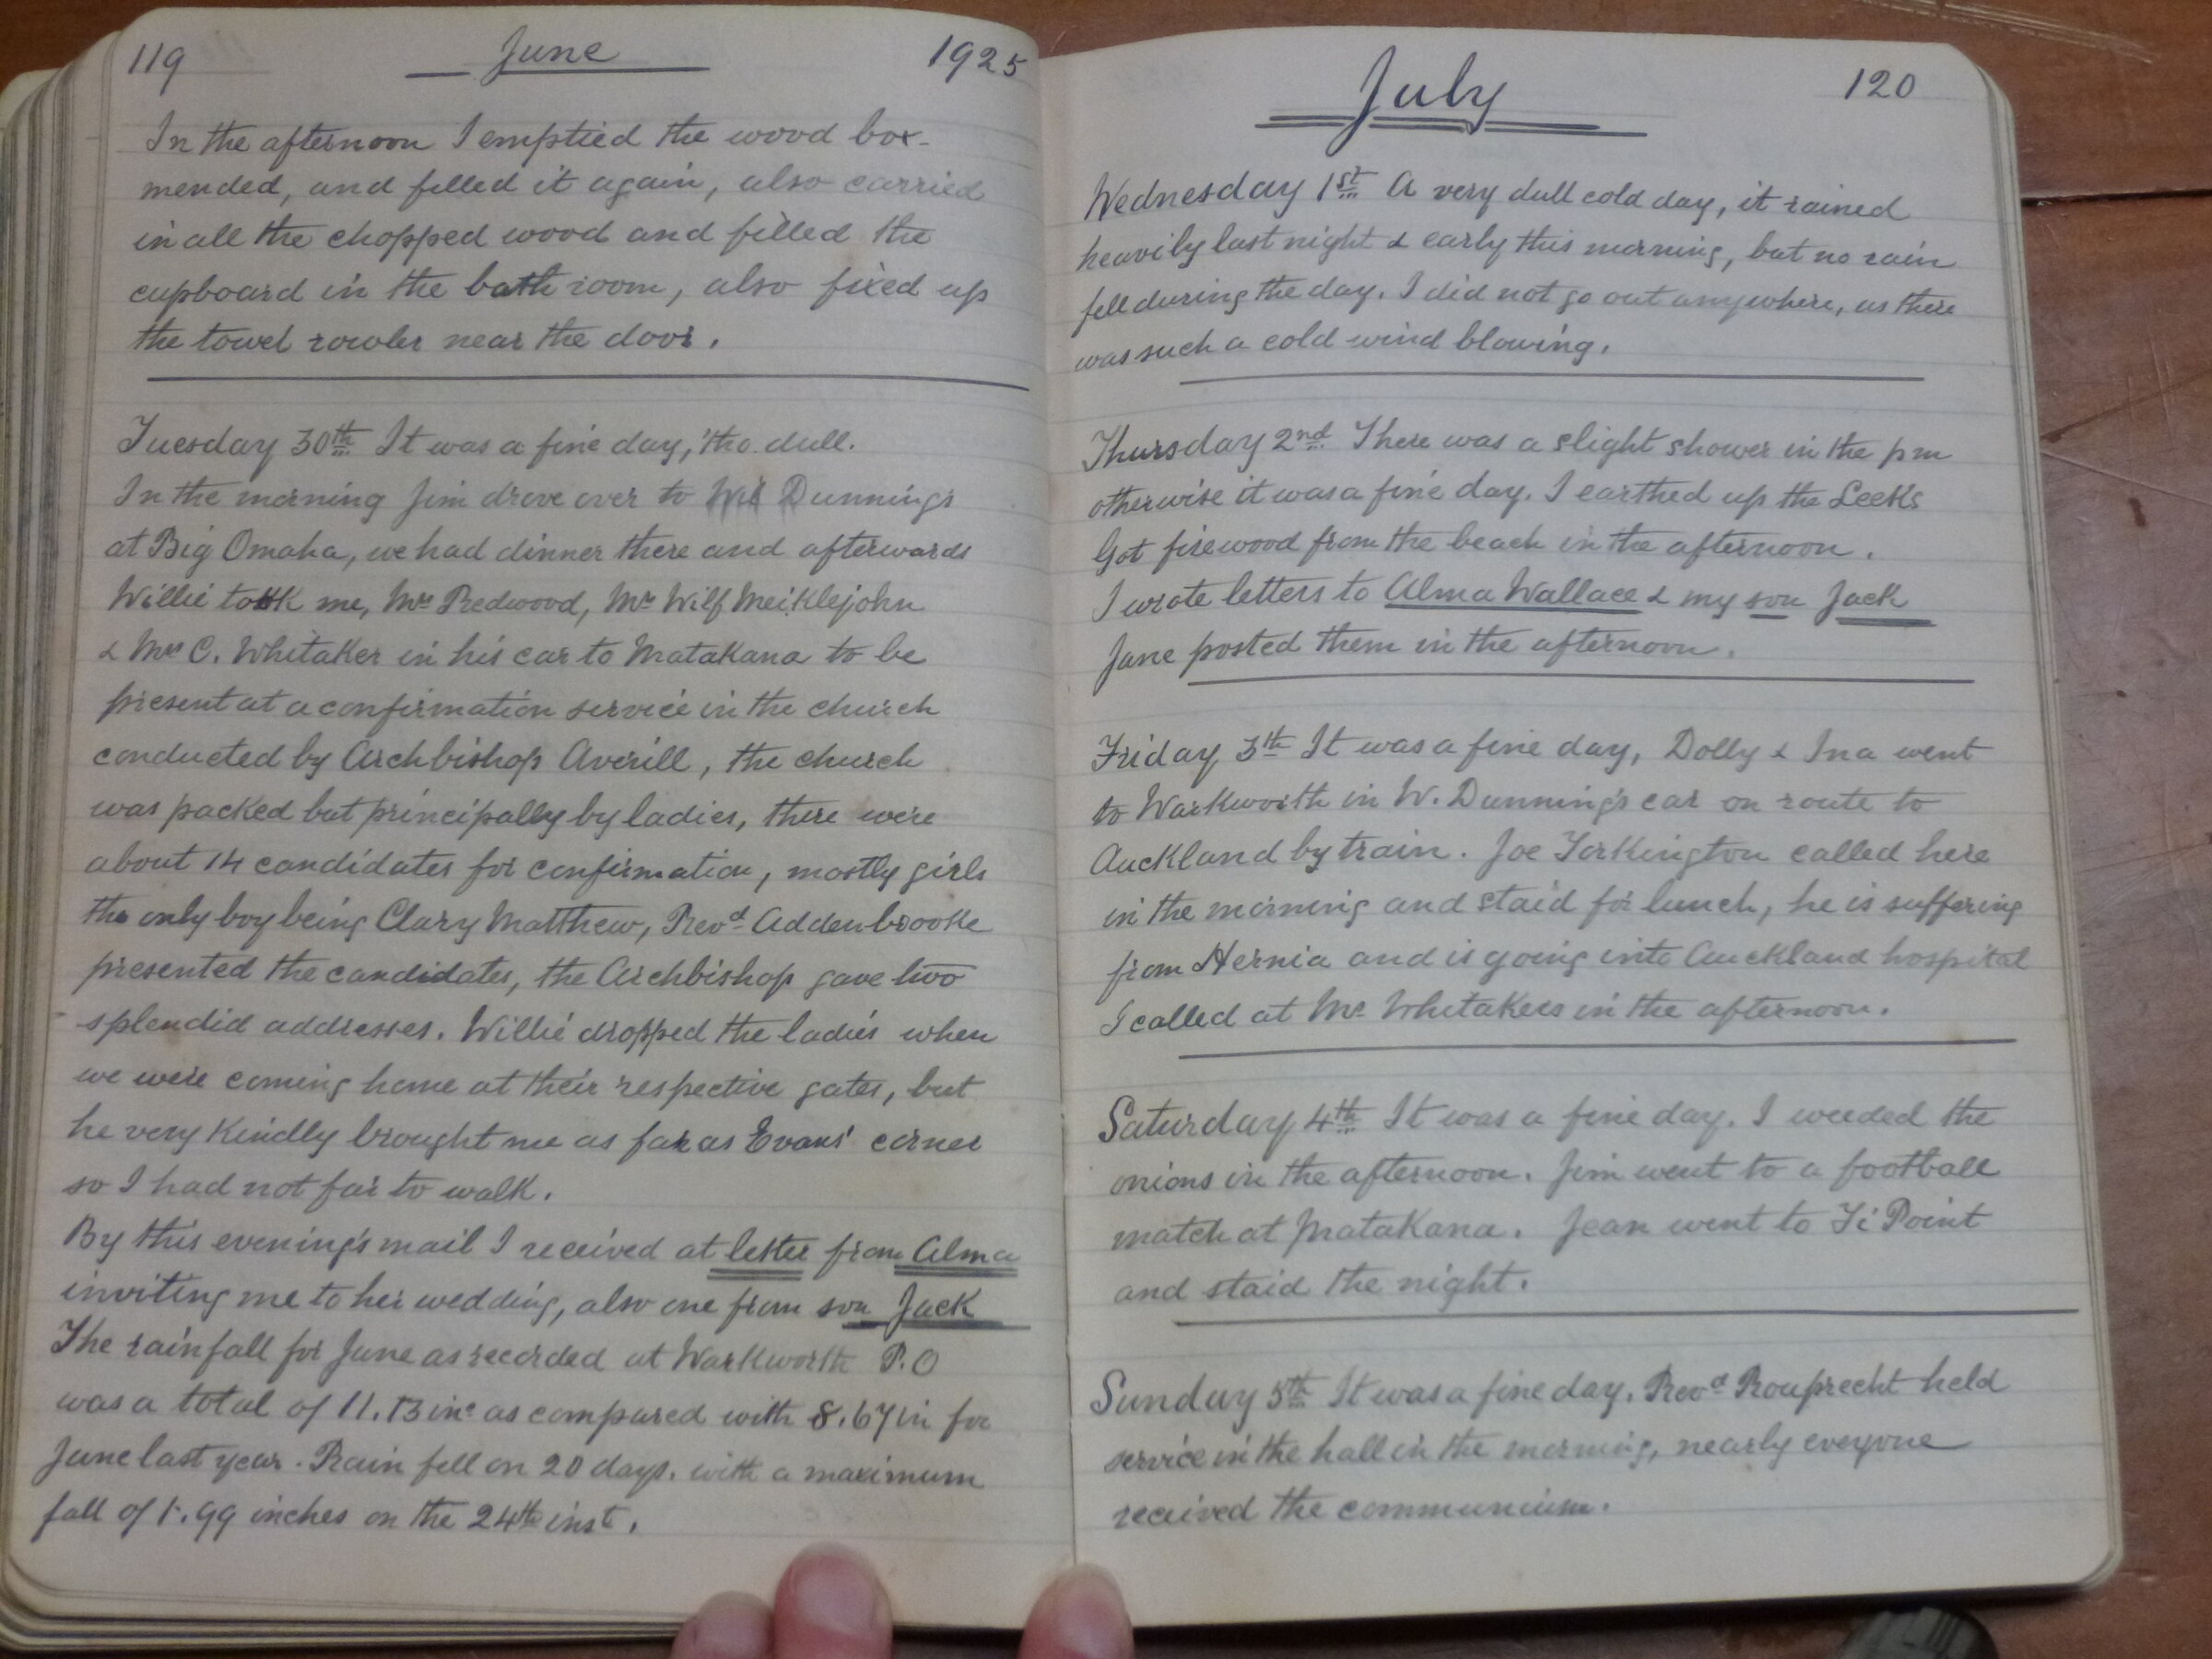 119 June 1925
In the afternoon I emptied the wood box-
mended, and filled it again, also carried
in all the chopped wood and filled the
cupboard in the bath room, also fixed up
the towel rowler near the door.
Tuesday 30th It was a fine day, 'tho dull.
In the morning Jim drove over to Dunnings
at Big Omaha, we had dinner there and afterwards
Willie took me, Mrs Redwood, Mrs Wilf Meiklejohn
& Mrs C. Whitaker in his car to Matakana to be
present at a confirmation service in the church
conducted by Archbishop Averill, the church
was packed but principally by ladies, there were
about 14 candidates for confirmation, mostly girls
the only boy being Clary Matthew, Revd Addenbrooke
presented the candidates, the Archbishop gave two
splendid addresses. Willie dropped the ladies when
we were coming home at their respective gates, but
he very kindly brought me as far as Evans' corner
so I had not far to walk.
By this evenings mail I received at letter from Alma
inviting me to her wedding, also one from son Jack
The rainfall for June as recorded at Warkworth P.O
was a total of 11.13 ins as compared with 8.67 in for
June last year. Rain fell on 20 days. with a maximum
fall of 1.99 inches on the 24th inst.
July 120
Wednesday 1st A very dull cold day, it rained
heavily last night & early this morning, but no rain
fell during the day. I did not go out anywhere, as there
was such a cold wind blowing.
Thursday 2nd There was a slight shower in the pm
otherwise it was a fine day. I earthed up the Leeks
Got firewood from the beach in the afternoon.
I wrote letters to Alma Wallace & my son Jack
Jane posted them in the afternoon.
Friday 3th It was a fine day, Dolly & Ina went
to Warkworth in W. Dunning's car on route to
Auckland by train. Joe Torkington called here
in the morning and staid for lunch, he is suffering
from Hernia and is going into Auckland hospital
I called at Mr Whitakers in the afternoon.
Saturday 4th It was a fine day. I weeded the
onions in the afternoon. Jim went to a football
match at Matakana. Jean went to Ti Point
and staid the night.
Sunday 5th It was a fine day. Revd Rouprecht held
service in the hall in the morning, nearly eveyone
received the communium.